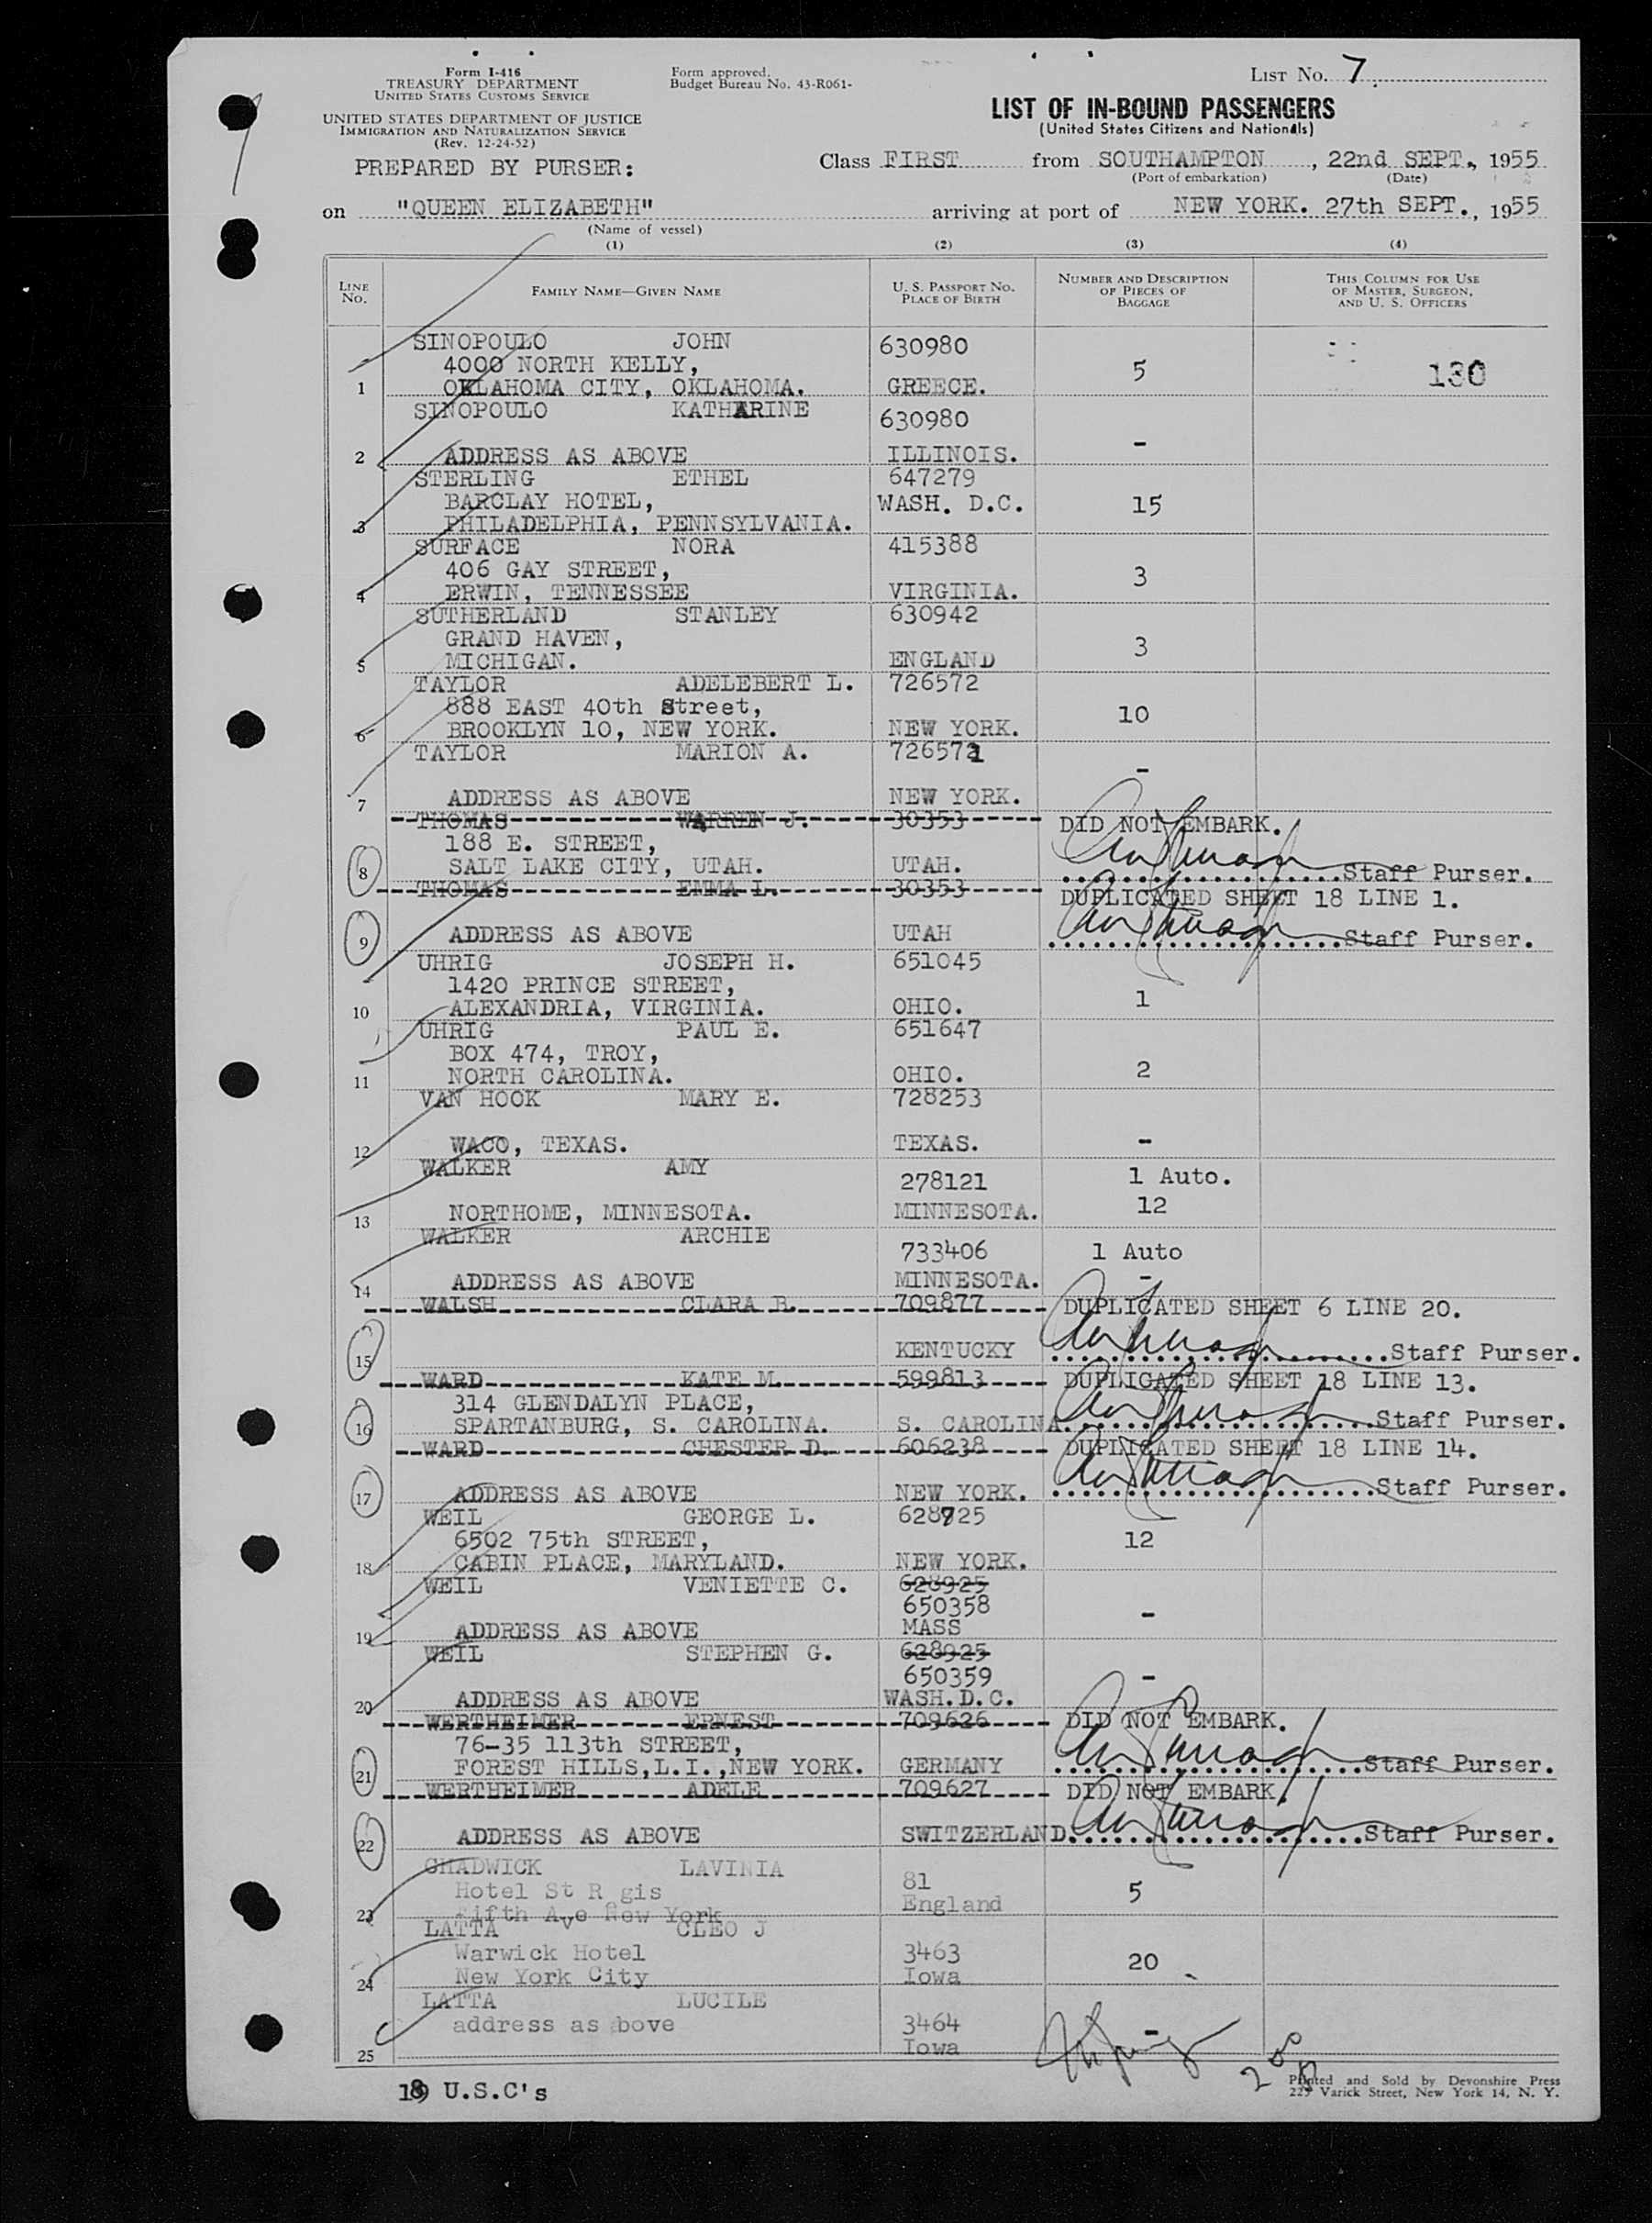 Form I-416
TREASURY DEPARTMENT
UNITED STATES CUSTOMS SERVICE
UNITED STATES DEPARTMENT OF JUSTICE
IMMIGRATION AND NATURALIZATION SERVICE
(Rev. 12-24-52)
Form approved.
Budget Bureau No. 43-R061-
LIST No. 7
LIST OF IN-BOUND PASSENGERS
(United States Citizens and Nationals)
PREPARED BY PURSER:
Class FIRST from SOUTHAMPTON, 22nd SEPT., 1955
(Port of embarkation) (Date)
on "QUEEN ELIZABETH" arriving at port of NEW YORK. 27th SEPT., 1955
(Name of vessel)
(1) (2) (3) (4)
LINE No. FAMILY NAME—GIVEN NAME U. S. PASSPORT No. PLACE OF BIRTH NUMBER AND DESCRIPTION OF PIECES OF BAGGAGE THIS COLUMN FOR USE OF MASTER, SURGEON, AND U. S. OFFICERS
SINOPOULO JOHN 630980
4000 NORTH KELLY, 5 130
1 OKLAHOMA CITY, OKLAHOMA. GREECE.
SINOPOULO KATHARINE 630980
-
2 ADDRESS AS ABOVE ILLINOIS.
STERLING ETHEL 647279
BARCLAY HOTEL, WASH. D.C. 15
3 PHILADELPHIA, PENNSYLVANIA.
SURFACE NORA 415388
406 GAY STREET, 3
4 ERWIN, TENNESSEE VIRGINIA.
SUTHERLAND STANLEY 630942
GRAND HAVEN, 3
5 MICHIGAN. ENGLAND
TAYLOR ADELEBERT L. 726572
888 EAST 40th Street, 10
6 BROOKLYN 10, NEW YORK. NEW YORK.
TAYLOR MARION A. 726571
-
7 ADDRESS AS ABOVE NEW YORK.
THOMAS WARREN J. 30353 DID NOT EMBARK.
188 E. STREET,
8 SALT LAKE CITY, UTAH. UTAH. Staff Purser.
THOMAS EMMA L. 30353 DUPLICATED SHEET 18 LINE 1.
9 ADDRESS AS ABOVE UTAH Staff Purser.
UHRIG JOSEPH H. 651045
1420 PRINCE STREET, 1
10 ALEXANDRIA, VIRGINIA. OHIO.
UHRIG PAUL E. 651647
BOX 474, TROY, 2
11 NORTH CAROLINA. OHIO.
VAN HOOK MARY E. 728253
12 WACO, TEXAS. TEXAS. -
WALKER AMY 278121 1 Auto.
13 NORTHOME, MINNESOTA. MINNESOTA. 12
WALKER ARCHIE 733406 1 Auto
14 ADDRESS AS ABOVE MINNESOTA. -
WALSH CLARA B. 709877 DUPLICATED SHEET 6 LINE 20.
15 KENTUCKY Staff Purser.
WARD KATE M. 599813 DUPLICATED SHEET 18 LINE 13.
314 GLENDALYN PLACE,
16 SPARTANBURG, S. CAROLINA. S. CAROLINA. Staff Purser.
WARD CHESTER D. 606238 DUPLICATED SHEET 18 LINE 14.
17 ADDRESS AS ABOVE NEW YORK. Staff Purser.
WEIL GEORGE L. 628925
6502 75th STREET, 12
18 CABIN PLACE, MARYLAND. NEW YORK.
WEIL VENIETTE C. 628925
650358 -
19 ADDRESS AS ABOVE MASS
WEIL STEPHEN G. 628925
650359 -
20 ADDRESS AS ABOVE WASH.D.C.
WERTHEIMER ERNEST 709626 DID NOT EMBARK.
76-35 113th STREET,
21 FOREST HILLS,L.I.,NEW YORK. GERMANY Staff Purser.
WERTHEIMER ADELE 709627 DID NOT EMBARK.
22 ADDRESS AS ABOVE SWITZERLAND. Staff Purser.
CHADWICK LAVINIA 81
Hotel St R gis 5
23 Fifth Ave New York England
LATTA CLEO J
Warwick Hotel 3463 20
24 New York City Iowa
LATTA LUCILE
address as bove 3464 -
25 Iowa
18 U.S.C's
Printed and Sold by Devonshire Press
225 Varick Street, New York 14, N. Y.